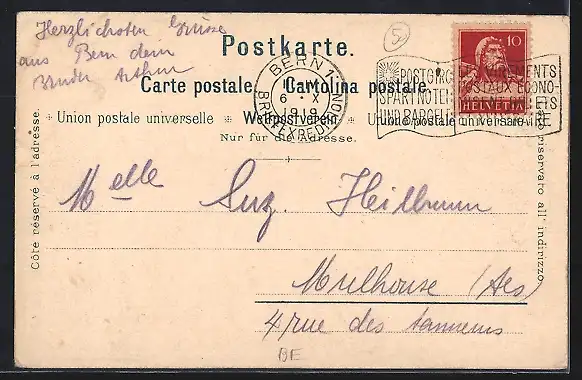 Herzlichsten Grüsse
aus Bern dein
Bruder Arthur
5
Postkarte.
Carte postale. Cartolina postale.
Union postale universelle Weltpostverein Unione postale universale
Nur für die Adresse.
BERN 1
6 X
BRIEFEXPEDITION
POSTGIRO
SPART NOTEN
UND BARGELD
VIREMENTS
POSTAUX ECONO-
10
HELVETIA
Côté réservé à l'adresse.
Lato riservato all' indirizzo.
Melle Suz. Heilbrunn
Mulhouse (Als)
4 rue des tanneurs
BE